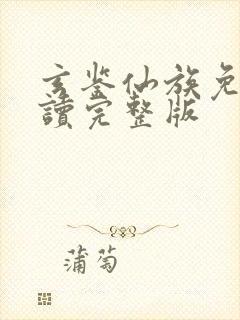 玄鉴仙族免
讀完整版
蒲萄